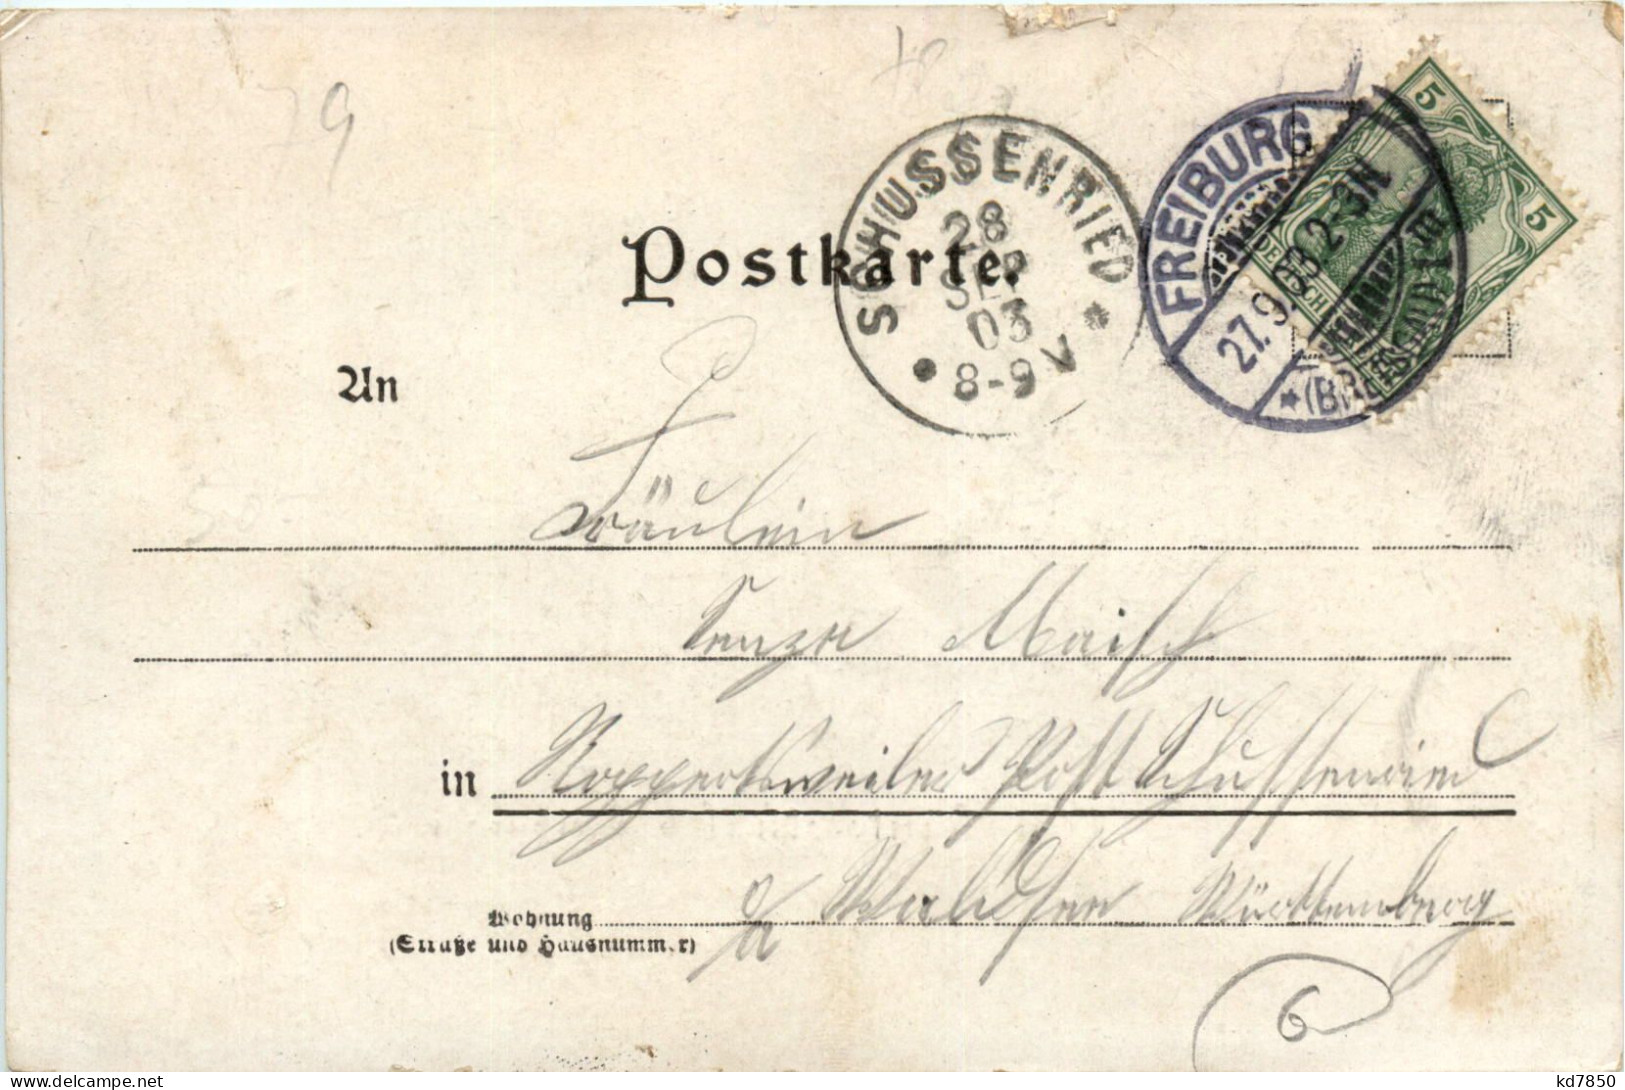 79
Postkarte.
SCHUSSENRIED
28
SEP
03
8-9 V
FREIBURG
27.9.03.2-3N
* (BREISGAU) *
5
5
DEUTSCHES
An
50-
Fräulein
Senze Maisch
in Roppertsweiler Post Schussenried
Wohnung
(Straße und Hausnummer)
a/ Waldsee Württemberg
6
www.delcampe.net
kd7850